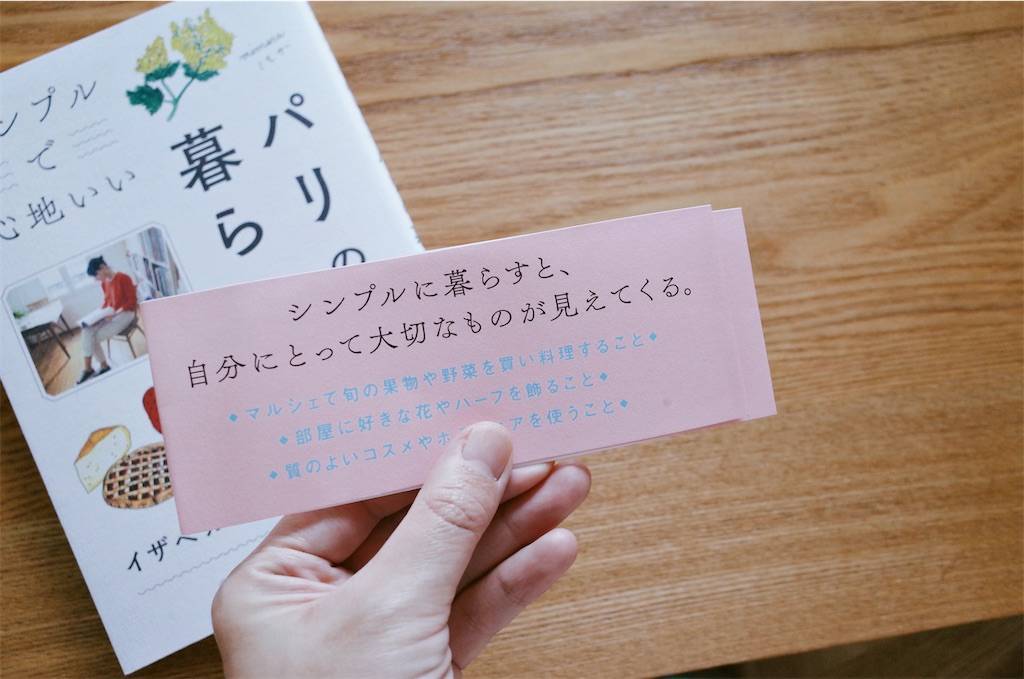 パリの
暮ら
ンプル
で
心地いい
イザベル
シンプルに暮らすと、
自分にとって大切なものが見えてくる。
◆マルシェで旬の果物や野菜を買い料理すること◆
◆部屋に好きな花やハーブを飾ること◆
◆質のよいコスメやホ
アを使うこと◆